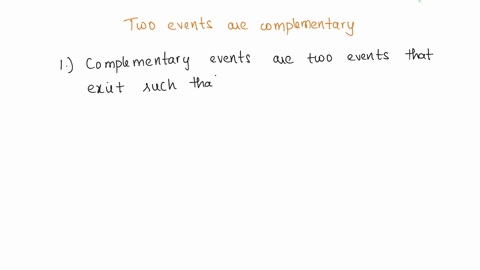 Two events are complementary
1.) Complementary events are two events that
exist such tha